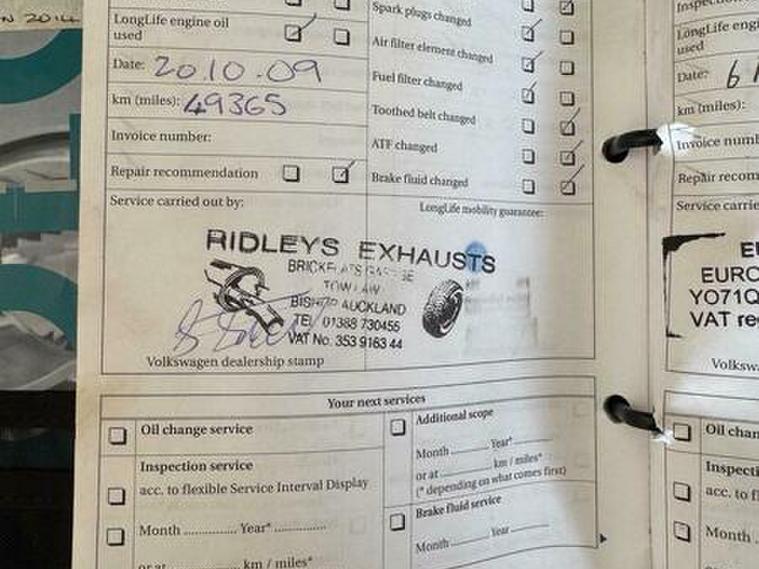 N 2014
LongLife engine oil
used
Date: 20.10.09
km (miles): 49365
Invoice number:
Repair recommendation
Service carried out by:
Spark plugs changed
Air filter element changed
Fuel filter changed
Toothed belt changed
ATF changed
Brake fluid changed
LongLife mobility guarantee:
RIDLEYS EXHAUSTS
TOW LAW
BISHOP AUCKLAND
TEL 01388 730455
VAT No. 353 9163 44
Volkswagen dealership stamp
Your next services
Oil change service
Inspection service
acc. to flexible Service Interval Display
Month ........... Year* ..............
or at ............ km / miles*
Additional scope
Month ......... Year* .........
or at ............ km / miles*
(* depending on what comes first)
Brake fluid service
Month ......... Year .........
Inspec
LongLife eng
used
Date: 6
km (miles):
Invoice numb
Repair recom
Service carrie
EU
EURO
YO71Q
VAT re
Volksw
Oil chan
Inspecti
acc. to fl
Month
or at